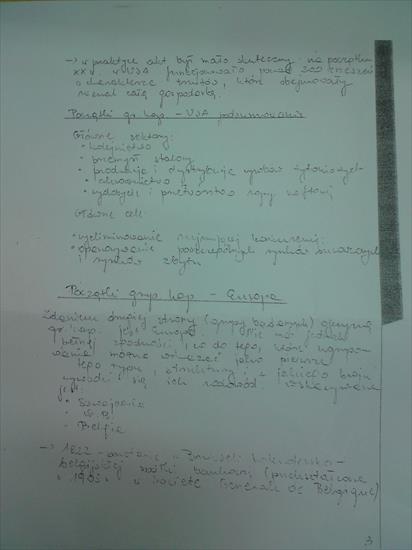 → w praktyce akt był mało skuteczny - na początku
XX w. w USA funkcjonowało ponad 300 zrzeszeń
o charakterze trustów, które obejmowały
niemal całą gospodarkę.
Początki gr. kap. - USA podsumowanie
Główne sektory:
• kolejnictwo
• przemysł stalowy
• produkcja i dystrybucja wyrobów tytoniowych
• cukrownictwo
• wydobycie i przetwórstwo ropy naftowej
Główne cele:
• wyeliminowanie najmniejszej konkurencji
• opanowywanie poszczególnych rynków surowcowych
i rynków zbytu
Początki grup kap. - Europa
Zdaniem drugiej strony (grupy badaczy) ojczyzną
gr. kap. jest Europa. Nie ma jednak
pełnej zgodności, co do tego, które ugrupo-
wanie można uważać jako pierwsze
tego typu struktury i z jakiego kraju
wywodzi się ich rodowód. Wskazywane
są:
• Szwajcaria
• W.B.
• Belgia
→ 1822 - powstanie w Brukseli holendersko-
belgijskiej spółki bankowej (przekształcona
w 1903 w Societe Generale de Belgique)
3